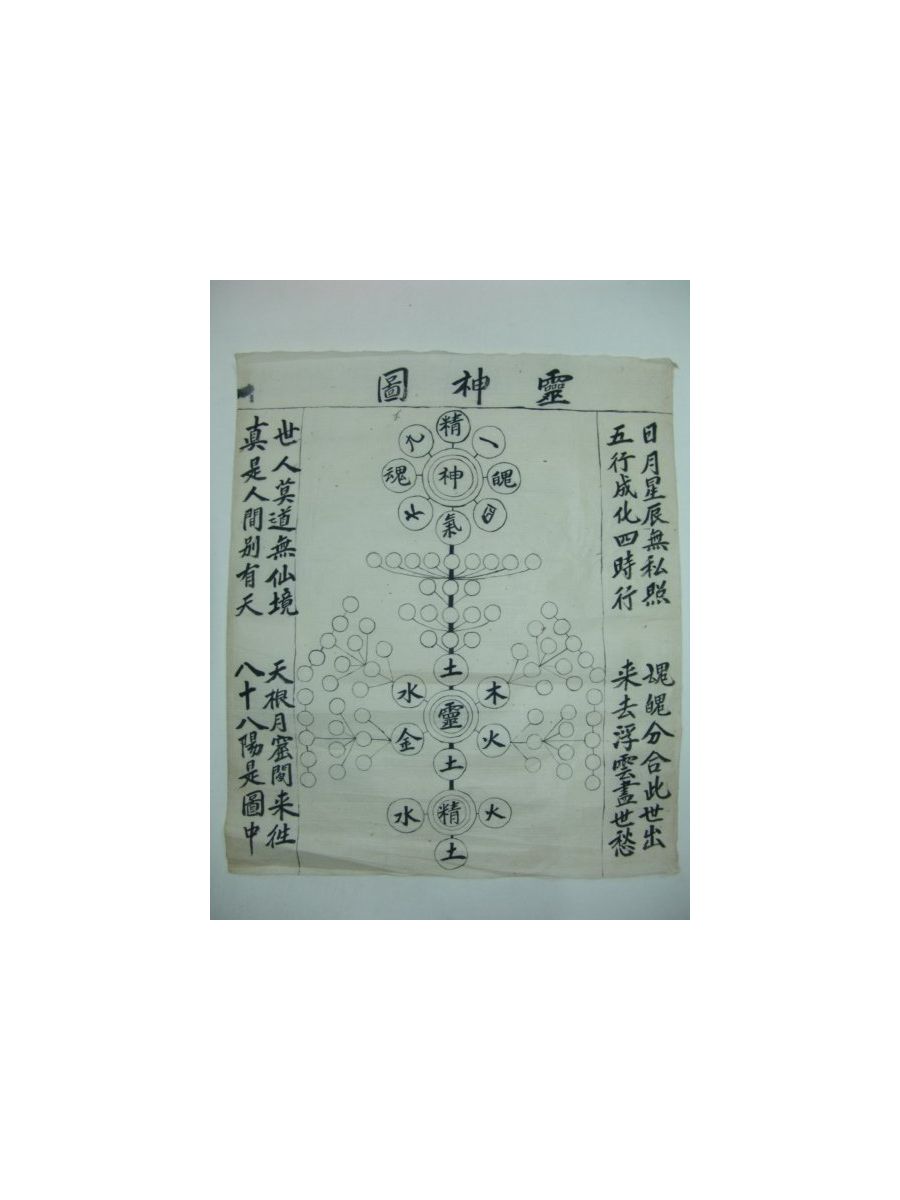 靈神圖
日月星辰無私照
五行成化四時行
魂魄分合此世出
来去浮雲盡世愁
精
九
一
魂
神
魄
四
氣
土
水
木
靈
金
火
土
水
精
火
土
世人莫道無仙境
真是人間别有天
天根月窟閒来徃
八十八陽是圖中